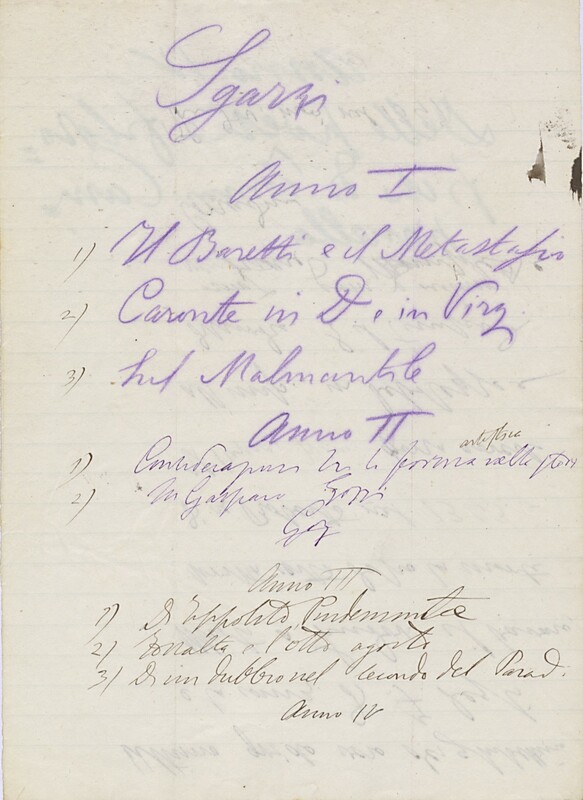 Sgarzi
Anno I
1) Il Baretti e il Metastasio
2) Caronte in D. e in Virg.
3) Sul Malmantile
Anno II
artistica
1) Considerazioni su la forma nella
2) Su Gasparo Gozzi
Goz
Anno III
1) D'Ippolito Pindemonte
2) e l'otto agosto
3) D'un dubbio nel secondo del Parad.
Anno IV